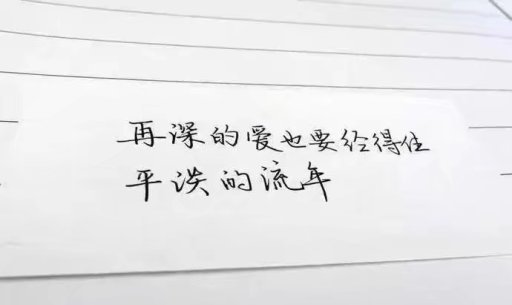 再深的爱也要给得住
平淡的流年